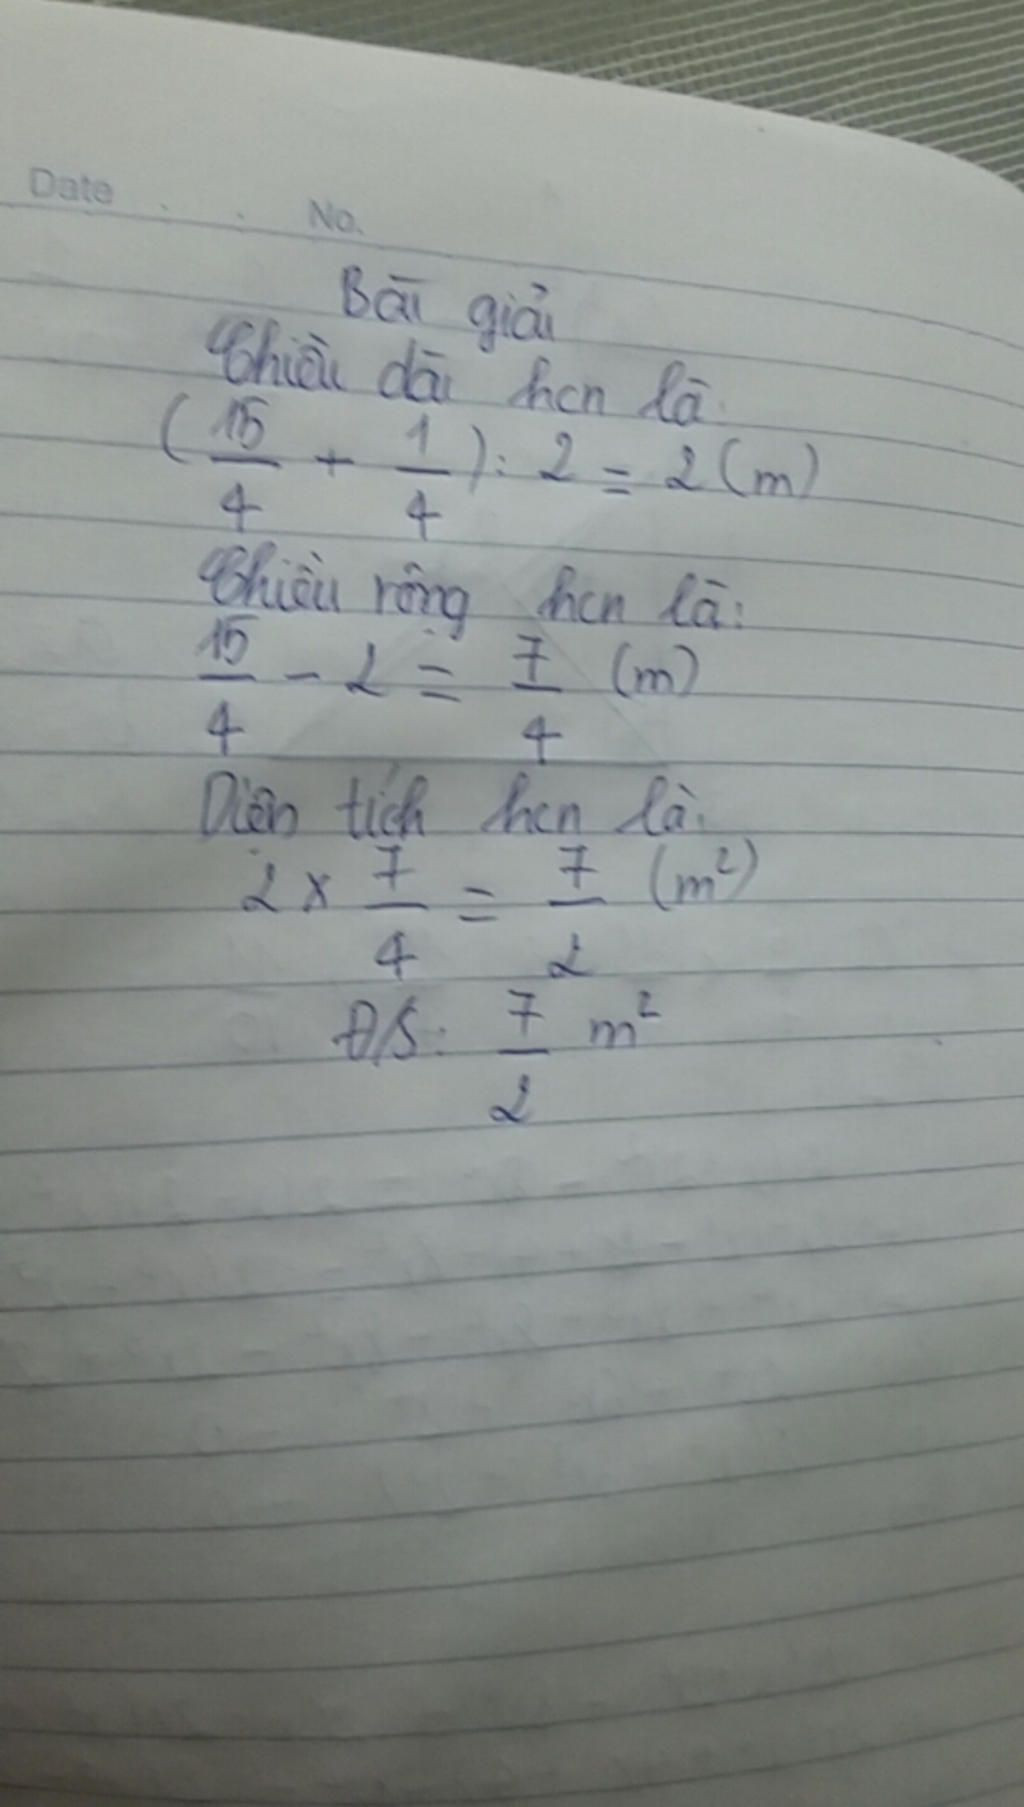 Date . . No.
Bài giải
Chiều dài hcn là:
(15/4 + 1/4) : 2 = 2 (m)
Chiều rộng hcn là:
15/4 - 2 = 7/4 (m)
Diện tích hcn là:
2 x 7/4 = 7/2 (m²)
Đ/S: 7/2 m²